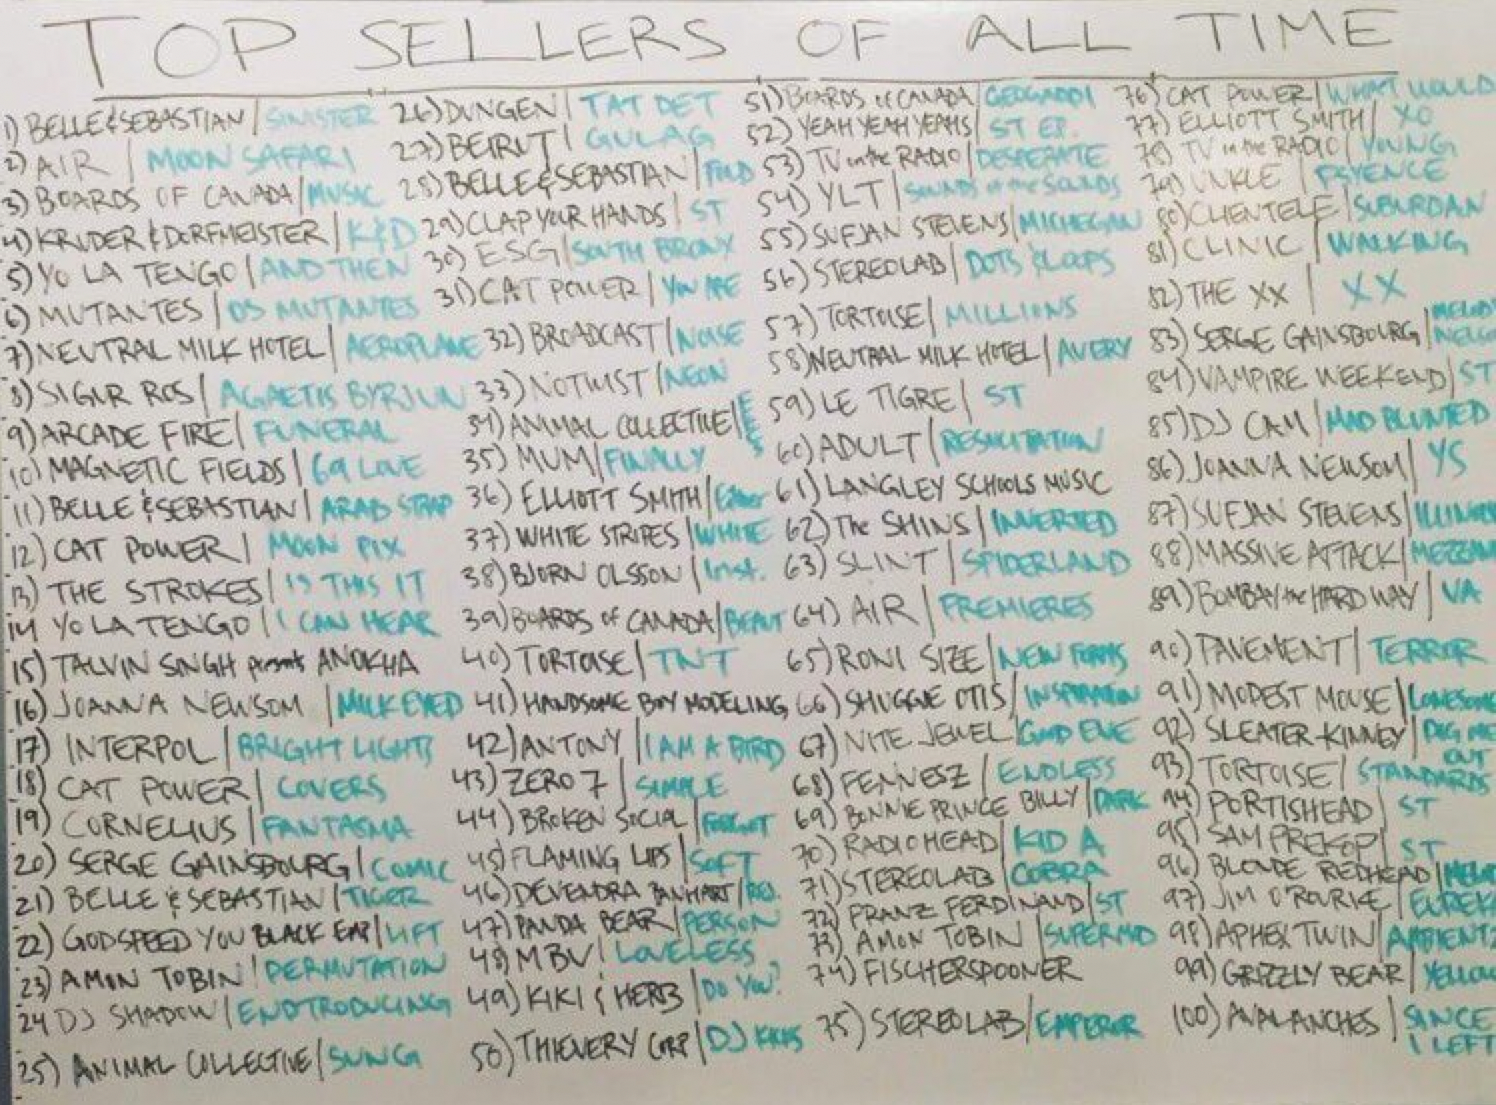 TOP SELLERS OF ALL TIME
1) BELLE & SEBASTIAN | SINISTER
2) AIR | MOON SAFARI
3) BOARDS OF CANADA | MUSIC
4) KRUDER & DORFMEISTER | K&D
5) YO LA TENGO | AND THEN
6) MUTANTES | OS MUTANTES
7) NEUTRAL MILK HOTEL | AEROPLANE
8) SIGUR ROS | AGAETIS BYRJUN
9) ARCADE FIRE | FUNERAL
10) MAGNETIC FIELDS | 69 LOVE
11) BELLE & SEBASTIAN | ARAB STRAP
12) CAT POWER | MOON PIX
13) THE STROKES | IS THIS IT
14 YO LA TENGO | I CAN HEAR
15) TALVIN SINGH presents ANOKHA
16) JOANNA NEWSOM | MILK EYED
17) INTERPOL | BRIGHT LIGHTS
18) CAT POWER | COVERS
19) CORNELIUS | FANTASMA
20) SERGE GAINSBOURG | COMIC
21) BELLE & SEBASTIAN | TIGER
22) GODSPEED YOU BLACK EMP | LIFT
23) AMON TOBIN | PERMUTATION
24 DJ SHADOW | ENDTRODUCING
25) ANIMAL COLLECTIVE | SUNG
26) DUNGEN | TAT DET
27) BEIRUT | GULAG
28) BELLE & SEBASTIAN | FOLD
29) CLAP YOUR HANDS | ST
30) ESG | SOUTH BRONX
31) CAT POWER | YOU ARE
32) BROADCAST | NOISE
33) NOTWIST | NEON
34) ANIMAL COLLECTIVE |
35) MUM | FINALLY
36) ELLIOTT SMITH | Either
37) WHITE STRIPES | WHITE
38) BJORN OLSSON | Inst.
39) BOARDS OF CANADA | BEAUT
40) TORTOISE | TNT
41) HANDSOME BOY MODELING
42) ANTONY | I AM A BIRD
43) ZERO 7 | SIMPLE
44) BROKEN SOCIAL | FORGOT
45) FLAMING LIPS | SOFT
46) DEVENDRA BANHART | REJ.
47) PANDA BEAR | PERSON
48) MBV | LOVELESS
49) KIKI & HERB | DO YOU?
50) THIEVERY CORP | DJ KICKS
51) BOARDS OF CANADA | GEOGADDI
52) YEAH YEAH YEAHS | ST EP.
53) TV in the RADIO | DESPERATE
54) YLT | SOUNDS of the SOUNDS
55) SUFJAN STEVENS | MICHEGAN
56) STEREOLAB | DOTS & LOOPS
57) TORTOISE | MILLIONS
58) NEUTRAL MILK HOTEL | AVERY
59) LE TIGRE | ST
60) ADULT | RESUSCITATION
61) LANGLEY SCHOOLS MUSIC
62) The SHINS | INVERTED
63) SLINT | SPIDERLAND
64) AIR | PREMIERES
65) RONI SIZE | NEW FORMS
66) SHUGGIE OTIS | INSPIRATION
67) NITE JEWEL | GOOD EVE
68) FENNESZ | ENDLESS
69) BONNIE PRINCE BILLY | DARK
70) RADIOHEAD | KID A
71) STEREOLAB | COBRA
72) FRANZ FERDINAND | ST
73) AMON TOBIN | SUPERMOD
74) FISCHERSPOONER
75) STEREOLAB | EMPEROR
76) CAT POWER | WHAT WOULD
77) ELLIOTT SMITH | XO
78) TV in the RADIO | YOUNG
79) UNKLE | PSYENCE
80) CLIENTELE | SUBURBAN
81) CLINIC | WALKING
82) THE XX | XX
83) SERGE GAINSBOURG | MELODY NELSO
84) VAMPIRE WEEKEND | ST
85) DJ CAM | MAD BLUNTED
86) JOANNA NEWSOM | YS
87) SUFJAN STEVENS | ILLINOIS
88) MASSIVE ATTACK | MEZZAN
89) BOMBAY the HARD WAY | VA
90) PAVEMENT | TERROR
91) MODEST MOUSE | LONESOME
92) SLEATER-KINNEY | DIG ME OUT
93) TORTOISE | STANDARDS
94) PORTISHEAD | ST
95) SAM PREKOP | ST
96) BLONDE REDHEAD | MELOD
97) JIM O'ROURKE | EUREKA
98) APHEX TWIN | AMBIENT 2
99) GRIZZLY BEAR | YELLOW
100) AVALANCHES | SINCE I LEFT